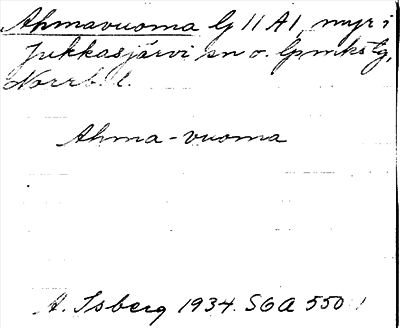 Ahmavuoma lj 11 A1, myr i
Jukkasjärvi sn o. lpmkstg,
Norrb. l.
Ahma-vuoma
A. Isberg 1934. SGA 550!